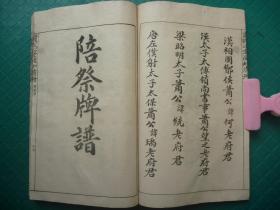 漢相國酇侯蕭公諱何老府君
漢太子太傅領尚書事蕭公望之老府君
梁昭明太子蕭公諱統老府君
唐左僕射太子太保蕭公諱瑀老府君
陪祭牌譜